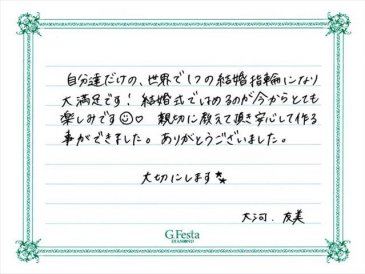 自分達だけの、世界で1つの結婚指輪になり
大満足です！結婚式ではめるのが今からとても
楽しみです☺♡ 親切に教えて頂き安心して作る
事ができました。ありがとうございました。
大切にします
大河．友美
G.Festa
DIAMOND